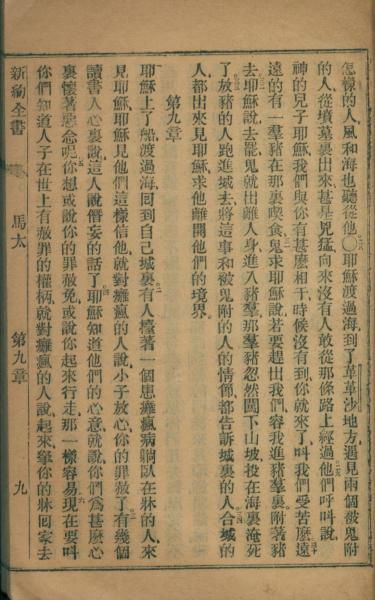 怎樣的人、風和海也聽從他〇耶穌渡過海、到了革革沙地方、遇見兩個被鬼附
的人、從墳墓裏出來、甚是兇猛、向來沒有人敢從那條路上經過、他們呼叫說、
神的兒子耶穌、我們與你有甚麽相干、時候沒有到、你就來了、叫我們受苦麽、
遠的有一羣豬在那裏喫食、鬼求耶穌說、若要趕出我們、容我進豬羣裏附著豬
去、耶穌說、去罷、鬼就出離人身、進入豬羣、那羣豬忽然闖下山坡、投在海裏淹死
了、放豬的人跑進城去、將這事和被鬼附的人的情節、都告訴城裏的人、合城的
人都出來見耶穌、求他離開他們的境界、
第九章
耶穌上了船、渡過海、回到自己城裏、有人擡著一個患癱瘋病躺臥在牀的人、來
見耶穌、耶穌見他們這樣信他、就對癱瘋的人說、小子放心、你的罪赦了、有幾個
讀書人心裏說、這人說僭妄的話了、耶穌知道他們的心意、就說、你們爲甚麽心
裏懷著惡念呢、你想或說你的罪赦免、或說你起來行走、那一樣容易、現在要叫
你們知道人子在世上有赦罪的權柄、就對癱瘋的人說、起來拏你的牀回家去
新約全書
馬太
第九章
九